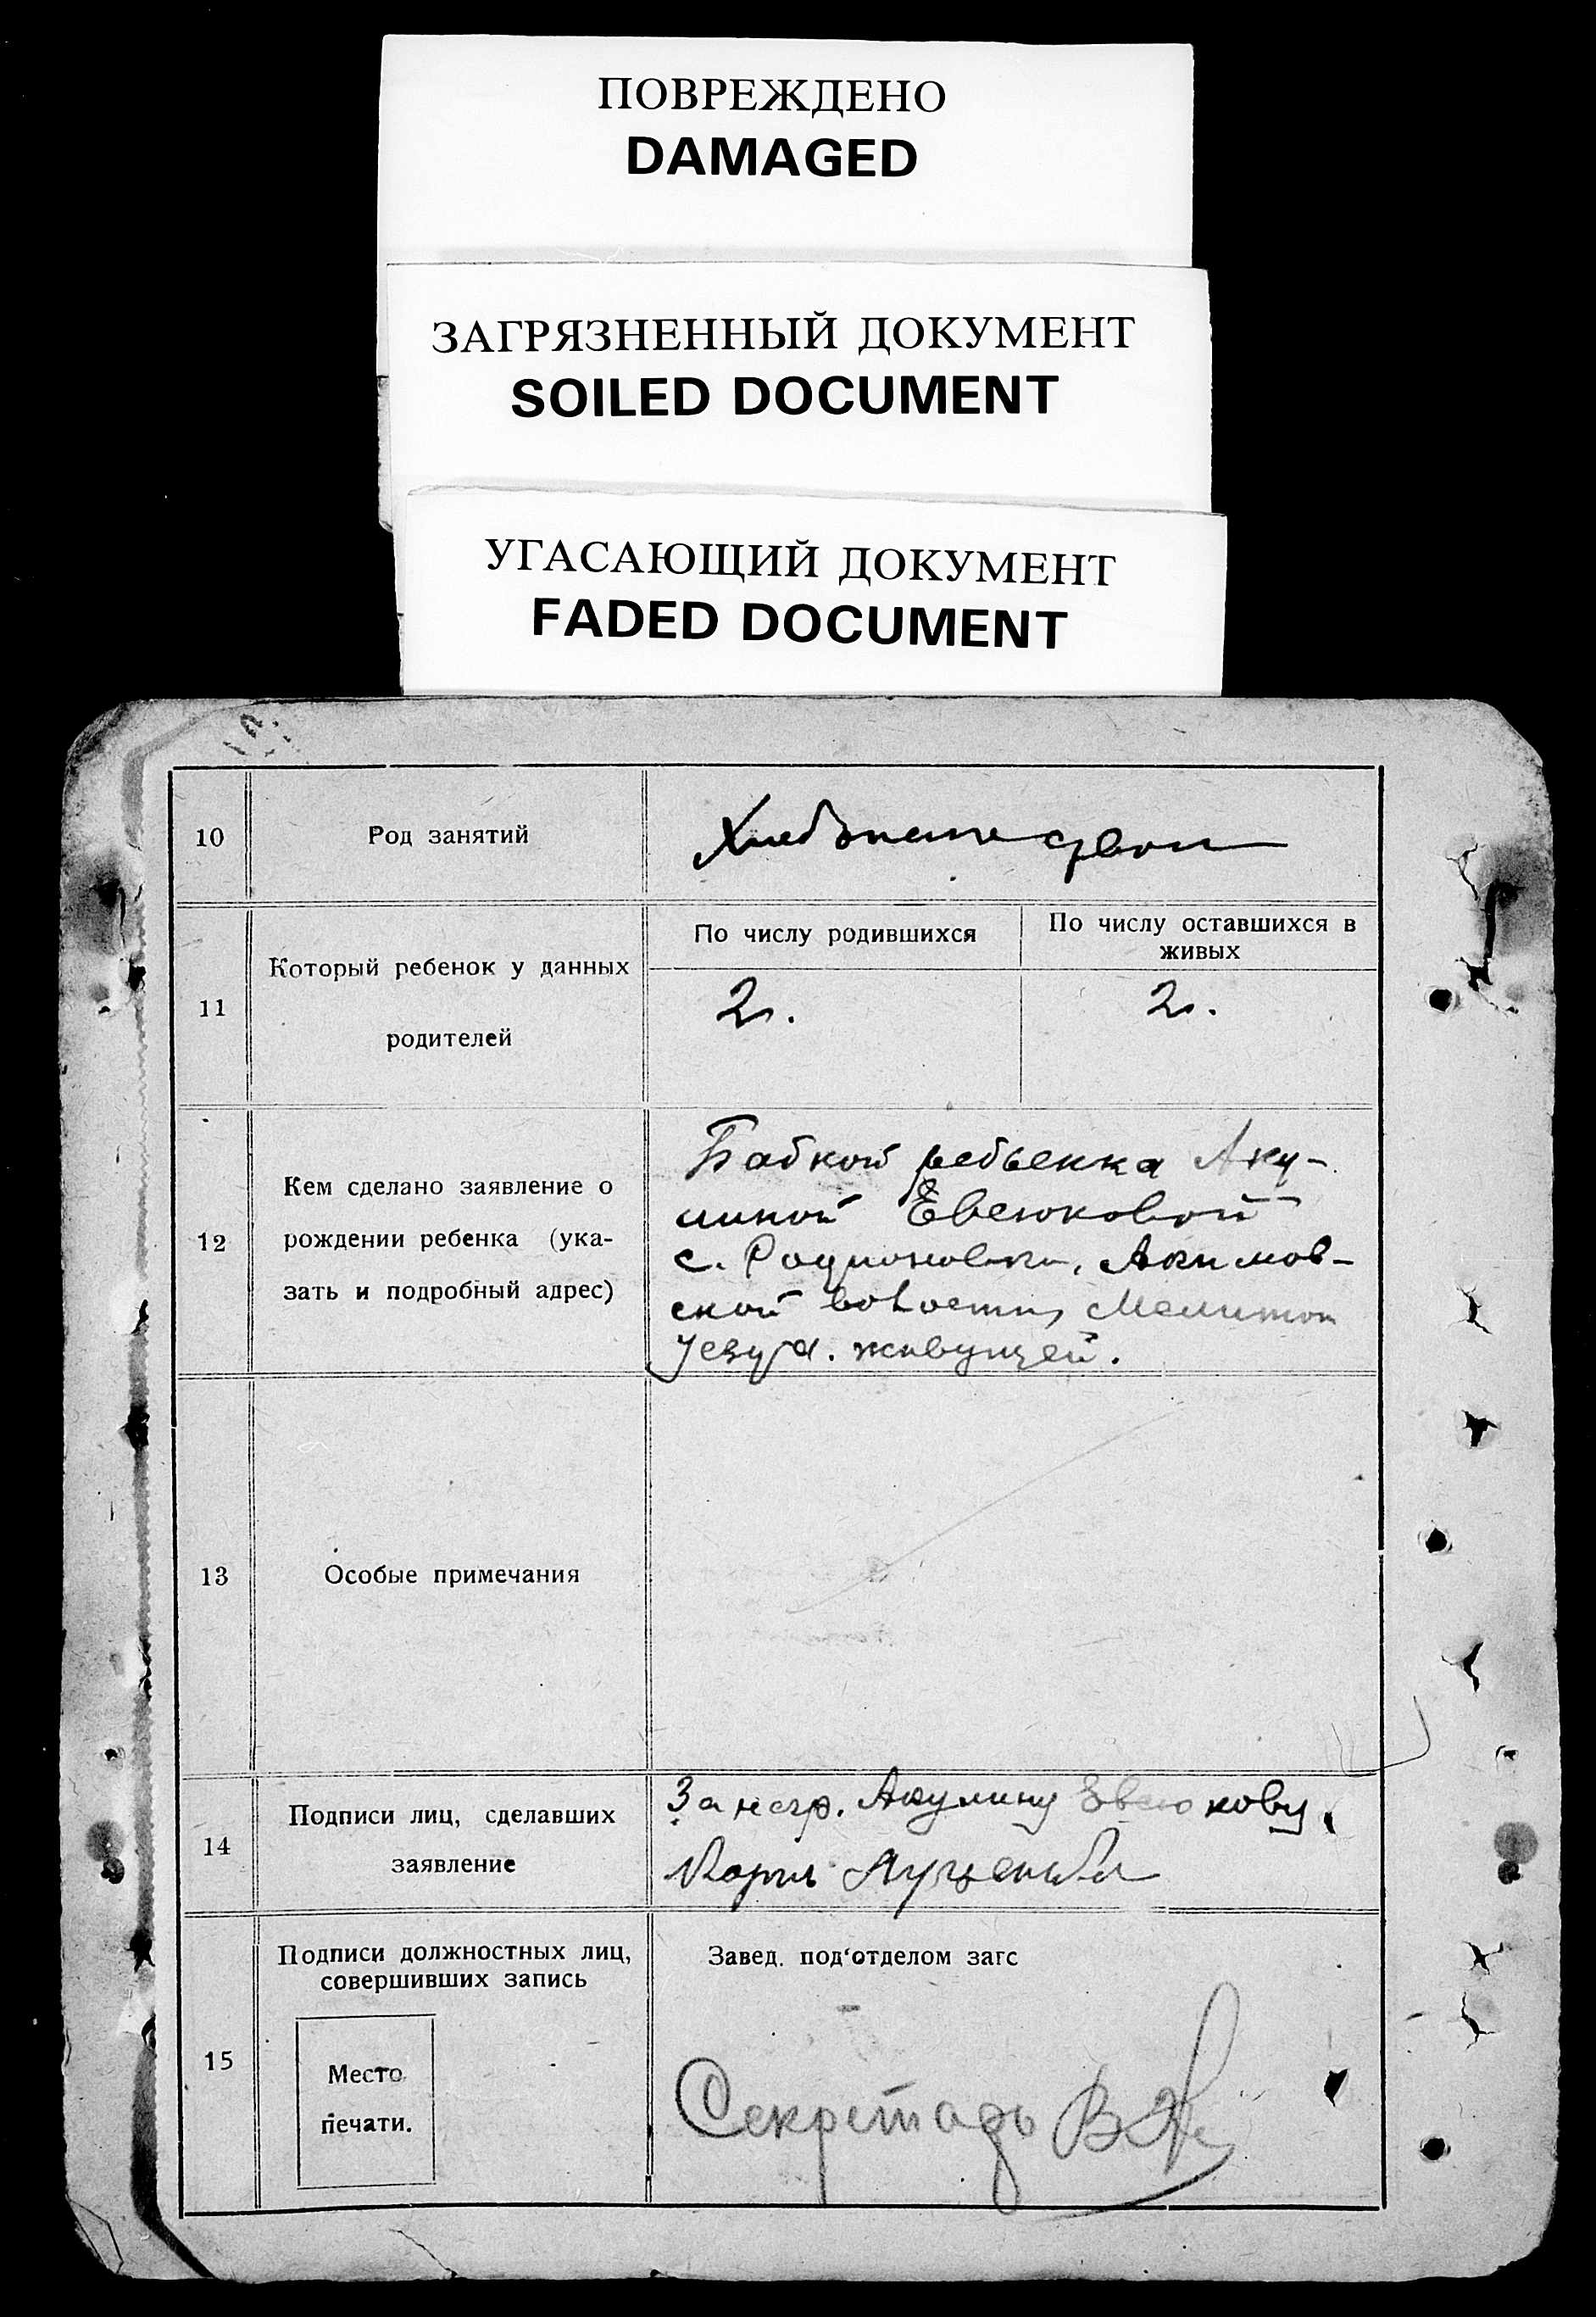 ПОВРЕЖДЕНО
DAMAGED
ЗАГРЯЗНЕННЫЙ ДОКУМЕНТ
SOILED DOCUMENT
УГАСАЮЩИЙ ДОКУМЕНТ
FADED DOCUMENT
10
Род занятий
11
Который ребенок у данных
родителей
По числу родившихся
По числу оставшихся в
живых
2.
2.
12
Кем сделано заявление о
рождении ребенка (ука-
зать и подробный адрес)
Бабкой ребьенка Аку-
линой Евсюковой
с. Родионовки, Акимов-
ской волости, Мелитоп
уезда. живущей.
13
Особые примечания
14
Подписи лиц, сделавших
заявление
За негр. Акулину Евсюкову,
15
Подписи должностных лиц,
совершивших запись
Место
печати.
Завед. под‘отделом загс
Секретарь